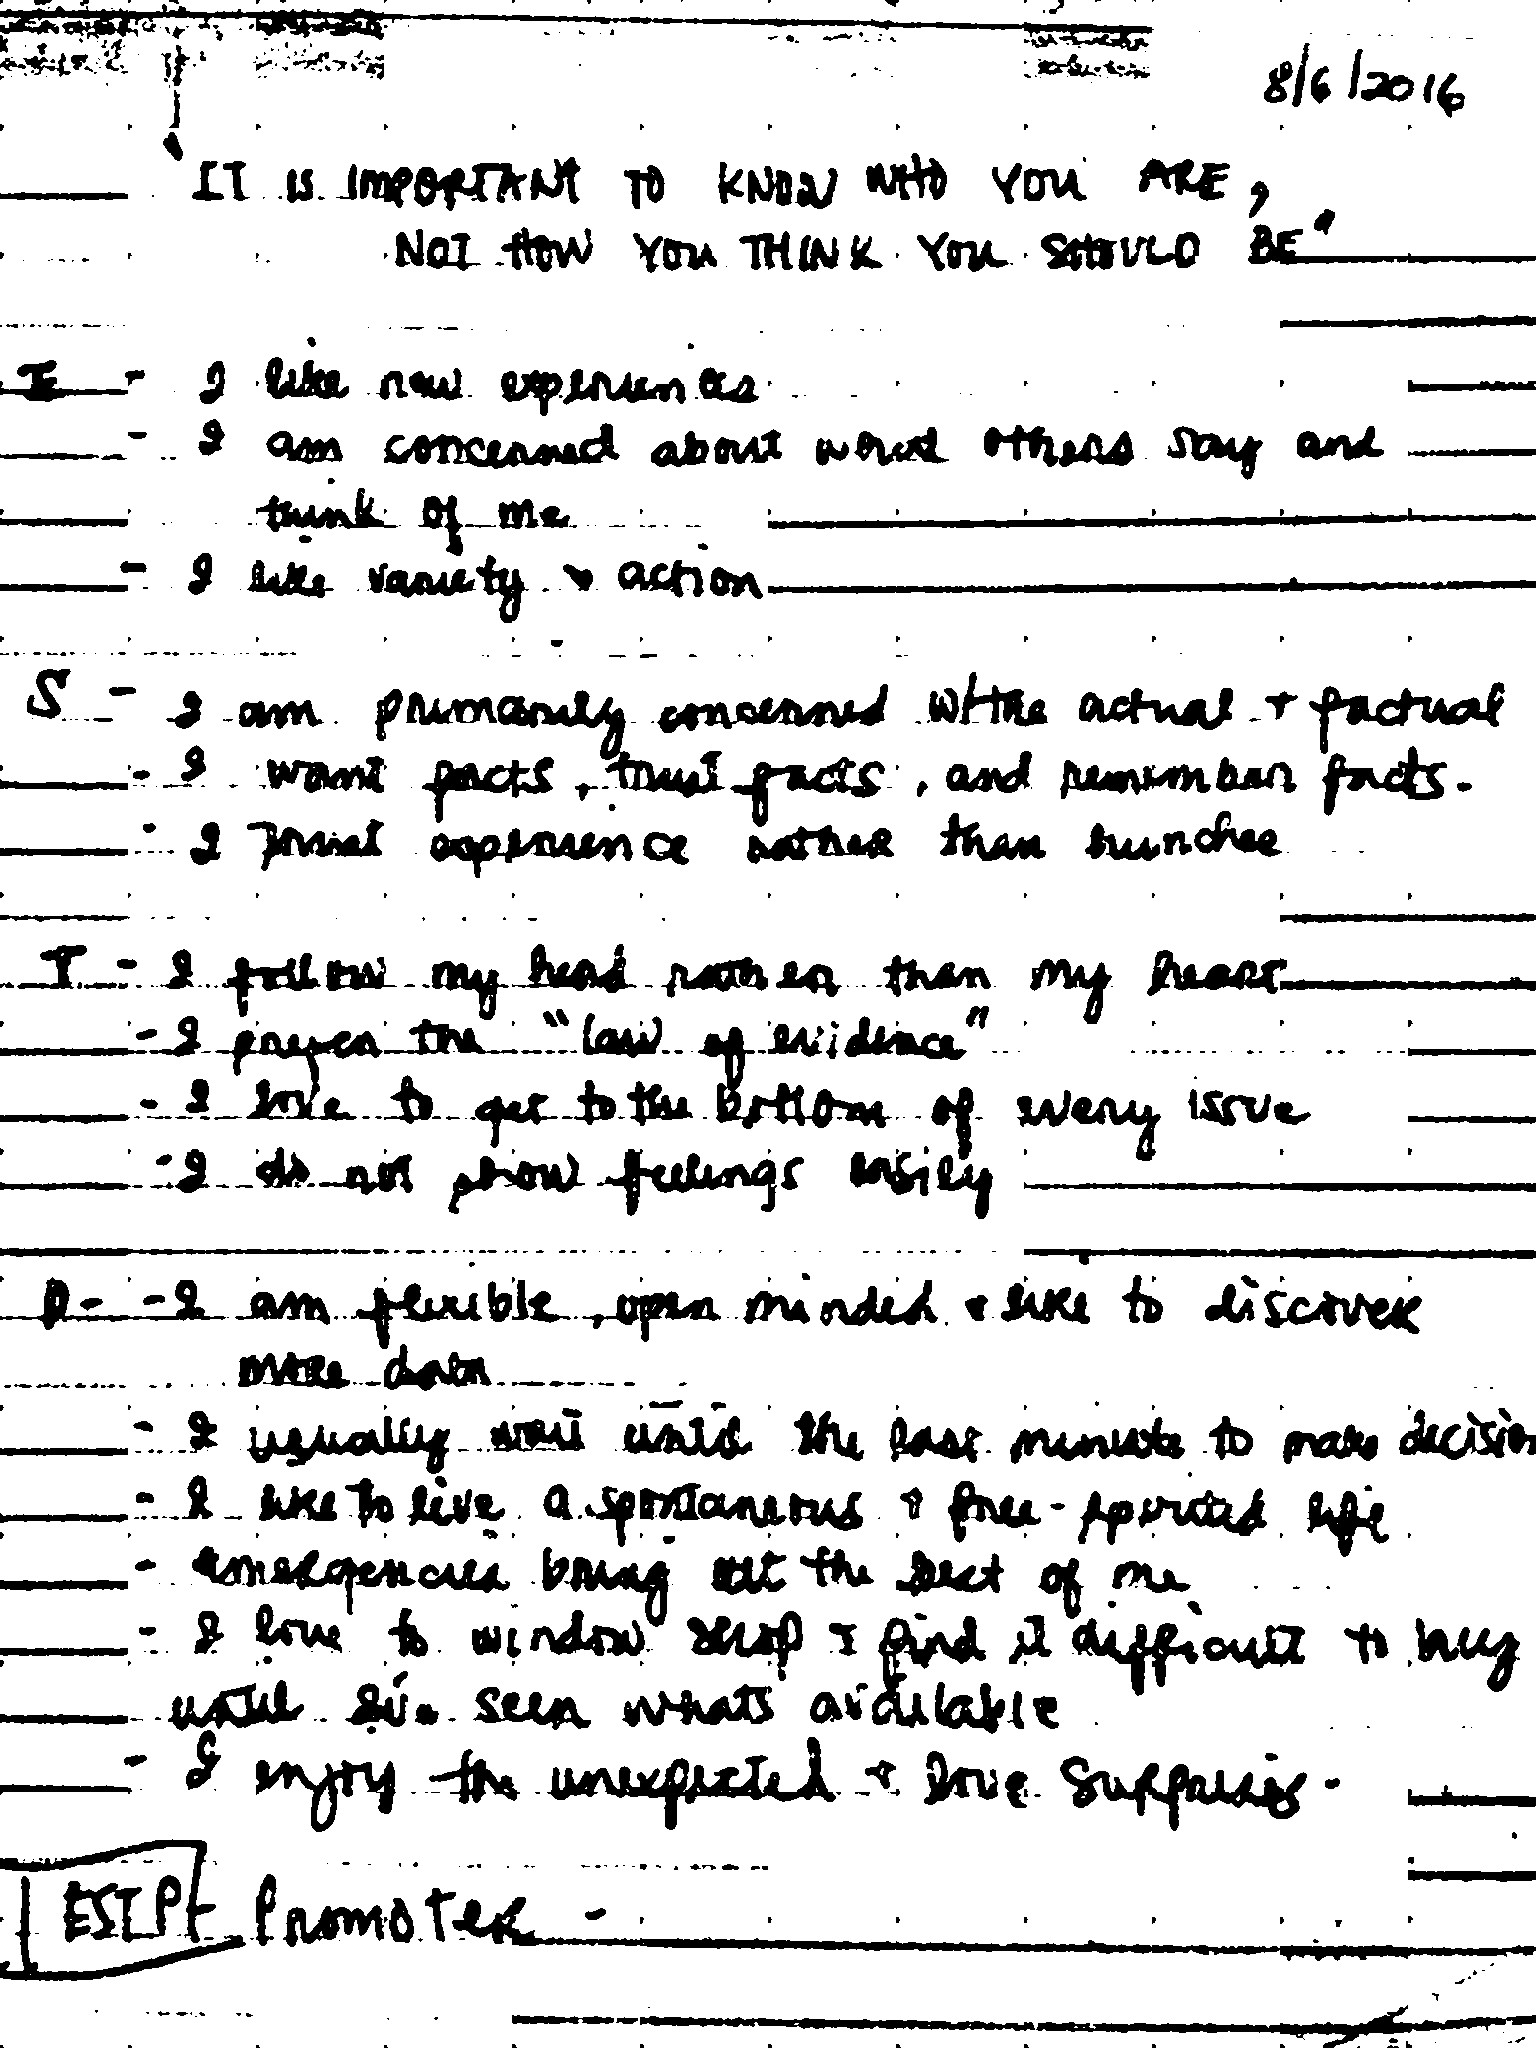 8/6/2016
IT IS IMPORTANT TO KNOW WHO YOU ARE,
NOT HOW YOU THINK YOU SHOULD BE"
E - I like new experiences
- I am concerned about what others say and
think of me
- I like variety + action
S - I am primarily concerned w/the actual + factual
- I want facts, trust facts, and remember facts.
- I trust experience rather than hunches
T - I follow my head rather than my heart
- I prefer the "law of evidence"
- I love to get to the bottom of every issue
- I do not show feelings easily
P - - I am flexible, open minded + like to discover
more data
- I usually wait until the last minute to make decision
- I like to live a spontaneous + free-spirited life
- emergencies bring out the best of me
- I love to window shop + find it difficult to buy
until I've seen whats available
- I enjoy the unexpected + love surprises.
ESTP Promoter -